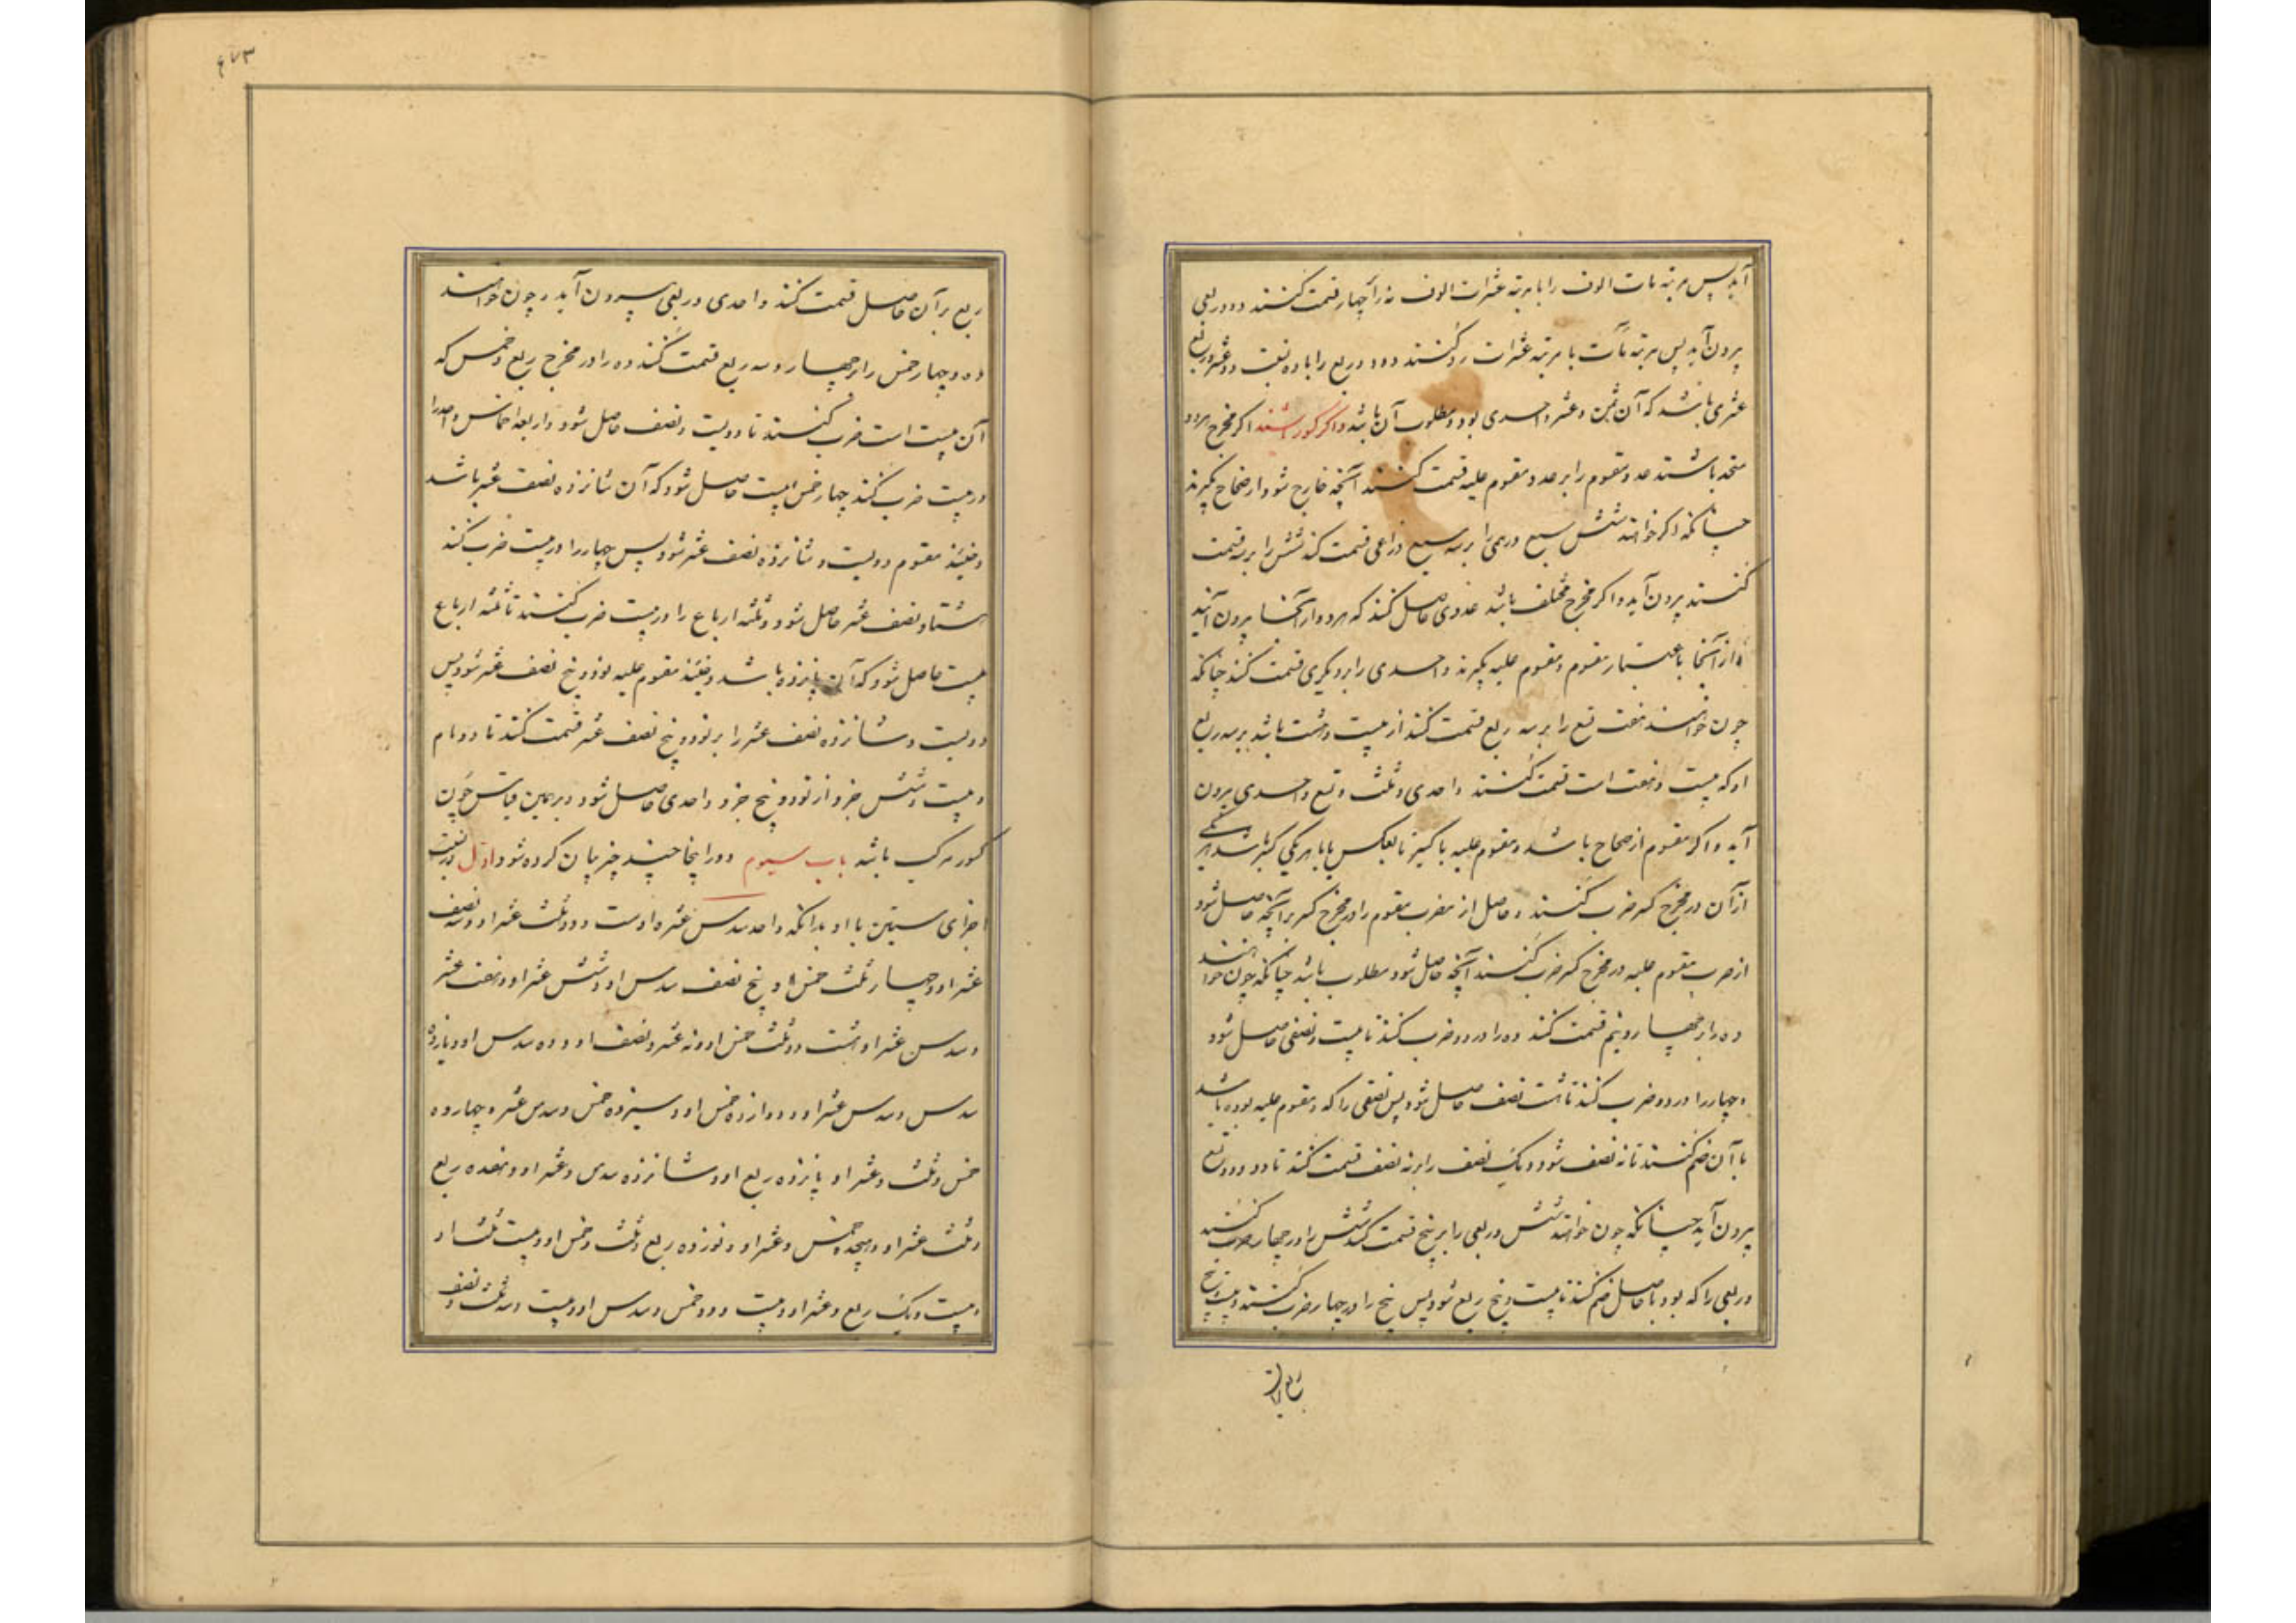 آید پس مرتبه مات الوف را با مرتبه عشرات الوف نه را بچهار قسمت کنند دو و ربعی
پرون آید پس مرتبه مآت با مرتبه عشرات رد کنند دو و ربع را با ده نسبت دو عشر و ربع
عشری باشد که آن ثمن و عشر واحدی بود و مطلوب آن باشد و اگر کسور باشند اگر مخرج هر دو
متحد باشند عدد مقسوم را بر عدد مقسوم علیه قسمت کنند آنچه خارج شود از صحاح بگیرند
چنانکه اگر خواهند شش سبع درهمی را بر سه سبع ذراعی قسمت کنند شش را بر سه قسمت
کنند پرون آید و اگر مخرج مختلف باشد عددی حاصل کنند که هر دو از آنجا پرون آیند
و از آنجا باعتبار مقسوم و مقسوم علیه بگیرند و احدی را بر دیگری قسمت کنند چنانکه
چون خواهند هفت تسع را بر سه ربع قسمت کنند از بیست و هشت باشد بر سه ربع
او که بیست و هفت است قسمت کنند واحدی و ثلث و تسع واحدی پرون
آید و اگر مقسوم از صحاح باشد و مقسوم علیه با کسر یا بعکس یا با هر یکی کسر باشد هر یکی
از آن در مخرج کسر ضرب کنند و حاصل از ضرب مقسوم را در مخرج کسر بر آنچه حاصل شود
از ضرب مقسوم علیه در مخرج کسر ضرب کنند آنچه حاصل شود مطلوب باشد چنانکه چون خواهند
ده را بر چهار و نیم قسمت کنند ده را در دو ضرب کنند تا بیست و نصفی حاصل شود
و چهار را در دو ضرب کنند تا هشت نصف حاصل شود پس نصفی را که در مقسوم علیه بوده باشد
با آن ضم کنند تا نه نصف شود و یک نصف را بر نه نصف قسمت کنند تا دو و دو تسع
پرون آید چنانکه چون خواهند شش و ربعی را بر پنج قسمت کنند شش را در چهار ضرب کنند
و ربعی را که بود با حاصل ضم کنند تا بیست و پنج ربع شود پس پنج را در چهار ضرب کنند و بیست و پنج
ربع بر آن
۶۷۳
ربع بر آن حاصل قسمت کنند واحدی و ربعی پرون آید و چون خواهند
ده و چهار خمس را بر چهار و سه ربع قسمت کنند ده را در مخرج ربع و خمس که
آن بیست است ضرب کنند تا دویست و نصف حاصل شود و اربعه اخماس واحد را
در بیست ضرب کنند چهار خمس بیست حاصل شود که آن شانزده نصف عشر باشد
و حینئذ مقسوم دویست و شانزده نصف عشر شود پس چهار را در بیست ضرب کنند
هشتاد نصف عشر حاصل شود و ثلثه ارباع را در بیست ضرب کنند تا ثلثه ارباع
بیست حاصل شود که آن پانزده باشد و حینئذ مقسوم علیه نود و پنج نصف عشر شود پس
دویست و شانزده نصف عشر را بر نود و پنج نصف عشر قسمت کنند تا دو تام
و بیست و شش جزو از نود و پنج جزو واحدی حاصل شود و بر همین قیاس چون
کسور مرکب باشد باب سیوم و در اینجا چند چیز بیان کرده شود اول در نسبت
اجزای ستین با او بدانکه واحد سدس عشر اوست و دو ثلث عشر او و سه نصف
عشر او و چهار ثلث خمس او و پنج نصف سدس او و شش عشر او و هفت عشر
و سدس عشر او و هشت دو ثلث خمس او و نه عشر و نصف او و ده سدس او و یازده
سدس و سدس عشر او و دوازده خمس او و سیزده خمس و سدس عشر و چهارده
خمس و ثلث و عشر او پانزده ربع او و شانزده سدس و عشر او و هفده ربع
و ثلث عشر او و هیجده خمس و عشر او و نوزده ربع و ثلث و خمس او و بیست ثلث او
و بیست و یک ربع و عشر او و بیست و دو خمس و سدس او و بیست و سه ثلث و نصف